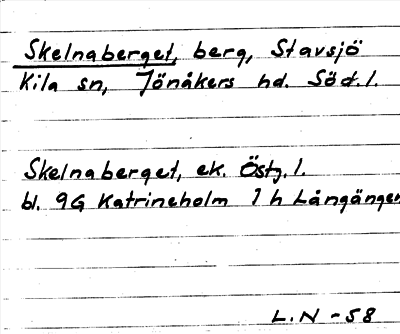 Skelnaberget, berg, Stavsjö
Kila sn, Jönåkers hd. Söd.l.
Skelnaberget, ek. Östg.l.
bl. 9G Katrineholm 1h Långängen
L.N -58